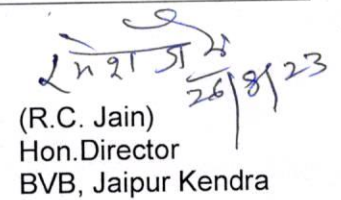 रमेश जैन
26/8/23
(R.C. Jain)
Hon.Director
BVB, Jaipur Kendra